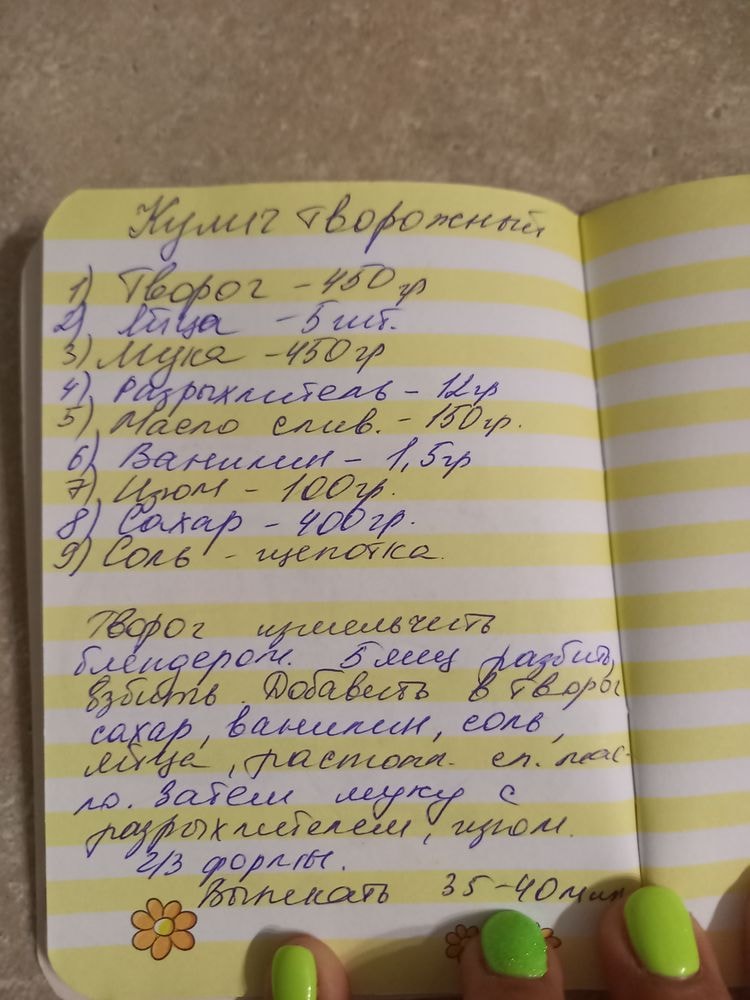 Кулич творожный
1) Творог - 450 гр
2) Яйца - 5 шт.
3) Мука - 450 гр
4) Разрыхлитель - 12 гр
5) Масло слив. - 150 гр.
6) Ванилин - 1,5 гр
7) Изюм - 100 гр.
8) Сахар - 400 гр.
9) Соль - щепотка.
Творог измельчить
блендером. 5 яиц разбить,
взбить. Добавить в творог
сахар, ванилин, соль,
яйца, растопл. сл. мас-
ло. Затем муку с
разрыхлителем, изюм.
2/3 формы.
Выпекать 35-40 мин